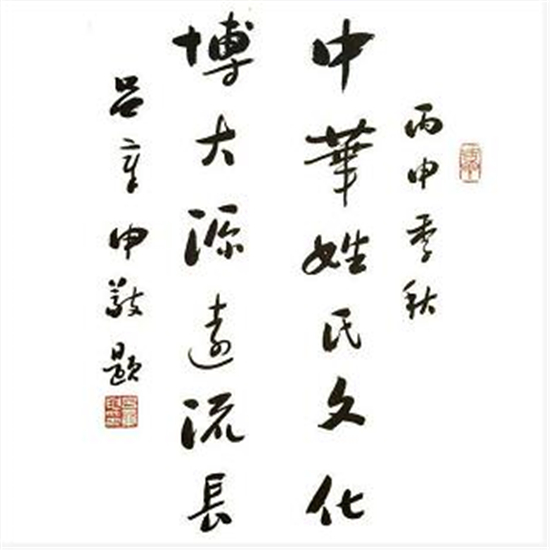 丙申季秋
中華姓氏文化
博大源遠流長
吕章申敬題